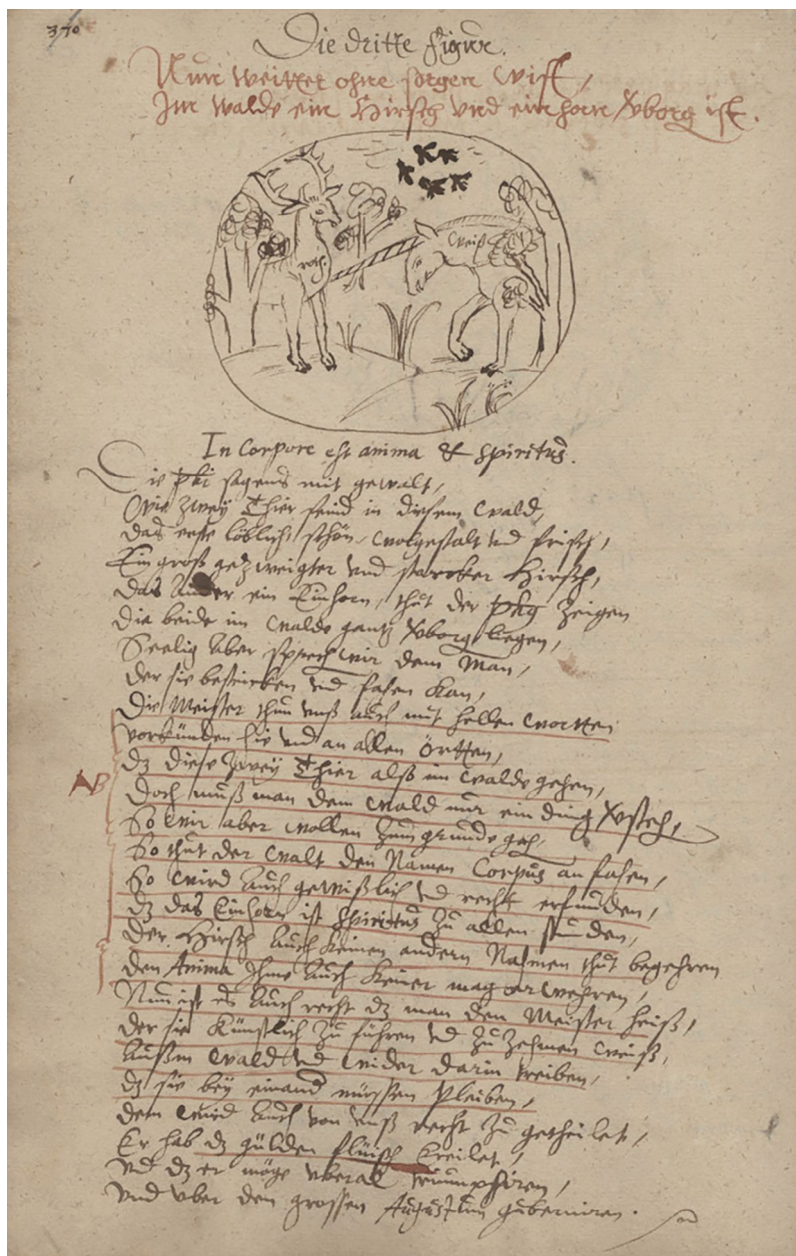 370
Die dritte Figur.
Nun weitter ohne sorgen wist,
Im walde ein Hirsch vnd einhorn Vborg ist.
weiß
In Corpore est anima & spiritus.
Die Phi sagend mit gewalt,
Wie zwey Thier seind in diesem Wald,
das erste löblich, schön, wolgestalt vnd frisch,
Ein groß gezweigter vnd starcker Hirsch,
das Ander ein Einhorn, thut der Phg zeigen
die beide im walde gantz Vborg liegen,
Seelig Aber sprech wir dem Man,
der sie bestricken vnd fahen kan,
Die Meister thun vnß auch mit hellen wortten
vorkünden hie vnd an allen örtten,
NB
dz diese zwey Thier alß im walde gehen,
doch muß man dem Wald nur ein ding Vsteh,
So wir aber wollen zum grunde geh,
So thut der Walt den Namen Corpus an fahen,
So wird Auch gewißlich vnd recht erfunden,
dz das Einhorn ist Spiritus zu allen stunden,
der Hirsch Auch keinen andern Nahmen thut begehren
den Anima Ihme Auch keiner mag erwehren,
Nun ist es Auch recht dz man den Meister heiß,
der sie künstlich zu führen vnd zu zehmen weiß,
Außm Wald vnd wider darin treiben,
dz sie bey einand müssen pleiben,
dem wird Auch von vnß recht zu getheilet,
Er hab dz gülden fleisch Ereilet,
vnd dz er möge vberal triumphiren,
vnd vber den grossen Augustum guberniren.